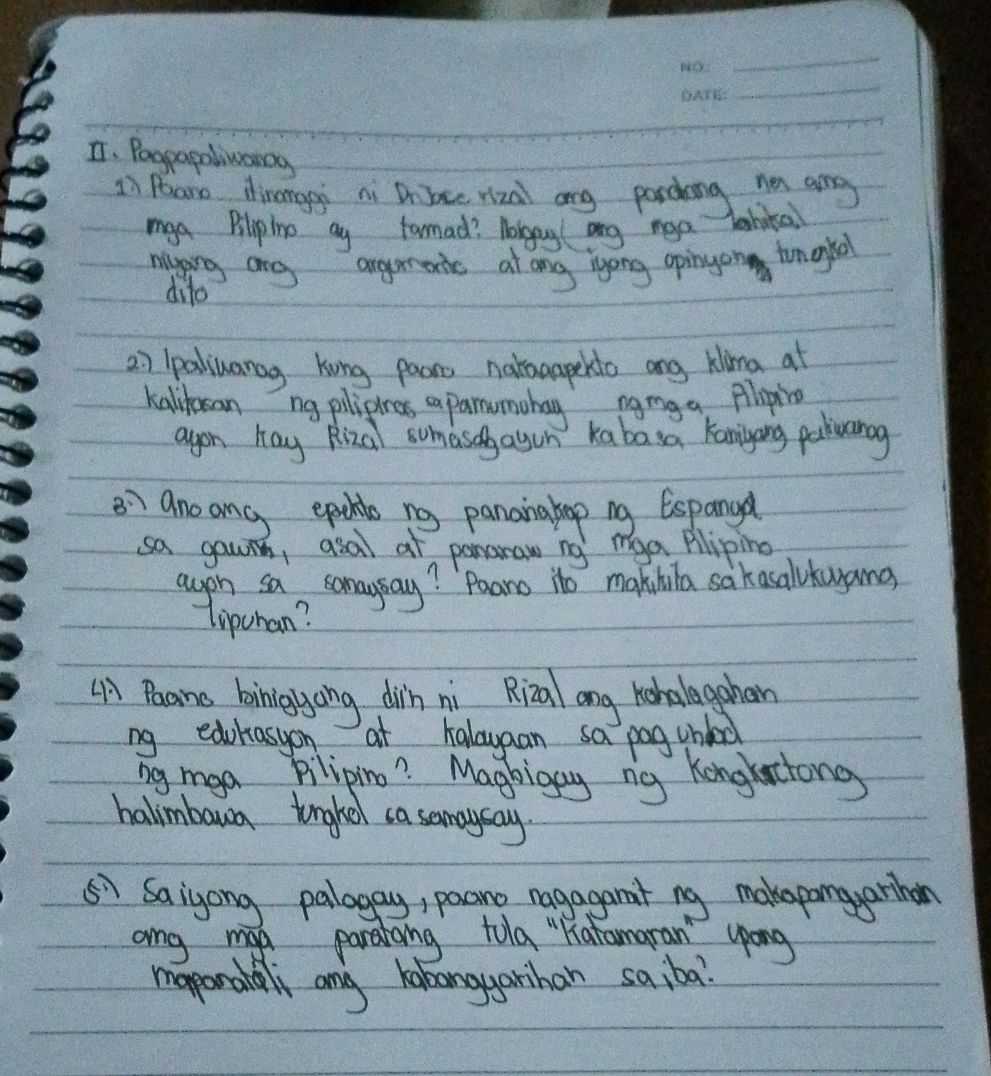 NO.
DATE:
II. Pagpapaliwanag
1.) Paano itinanggi ni Dr. Jose rizal ang paratang na ang
mga Pilipino ay tamad? ang mga
niyang ang at ang iyong opinyon tungkol
dito
2.) Ipaliwanag kung paano nakaaapekto ang klima at
kalikasan ng pilipinas sa Pamumuhay ng mga Pilipino
ayon kay Rizal sumasangayun ka ba sa kaniyang paliwanag
3.) ano ang epekto ng pananakop ng Espanya
sa gawin, asal at pananaw ng mga Pilipino
ayon sa sanaysay? Paano ito makikita sa kasalukuyang
lipunan?
4.) Paano binigyang diin ni Rizal ang kahalagahan
ng edukasyon at kalayaan sa pag unlad
ng mga Pilipino? Magbigay ng
halimbawa tungkol sa sanaysay.
5.) Sa iyong palagay, paano nagagamit ng makapangyarihan
ang mga paratang tula "Katamaran" upang
mapanatili ang kabangyarihan sa iba?